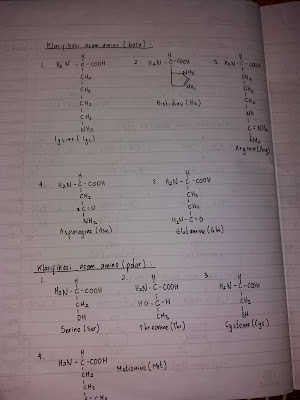 Klasifikasi asam amino (basa) :
1. H2N - C - COOH
H
CH2
CH2
CH2
CH2
NH2
Lysine (Lys)
2. H2N - C - COOH
H
Histidine (His)
3. H2N - C - COOH
H
CH2
CH2
CH2
NH
C = NH2
NH2
Arginine (Arg)
4. H2N - C - COOH
H
CH2
C = O
NH2
Asparagine (Asn)
5. H2N - C - COOH
H
CH2
CH2
H2N - C = O
Glutamine (Gln)
Klasifikasi asam amino (polar) :
1. H2N - C - COOH
H
CH2
OH
Serine (Ser)
2. H2N - C - COOH
H
HO - C - H
CH3
Threonine (Thr)
3. H2N - C - COOH
H
CH2
SH
Cysteine (Cys)
4. H2N - C - COOH
H
CH2
CH2
Metionine (Met)